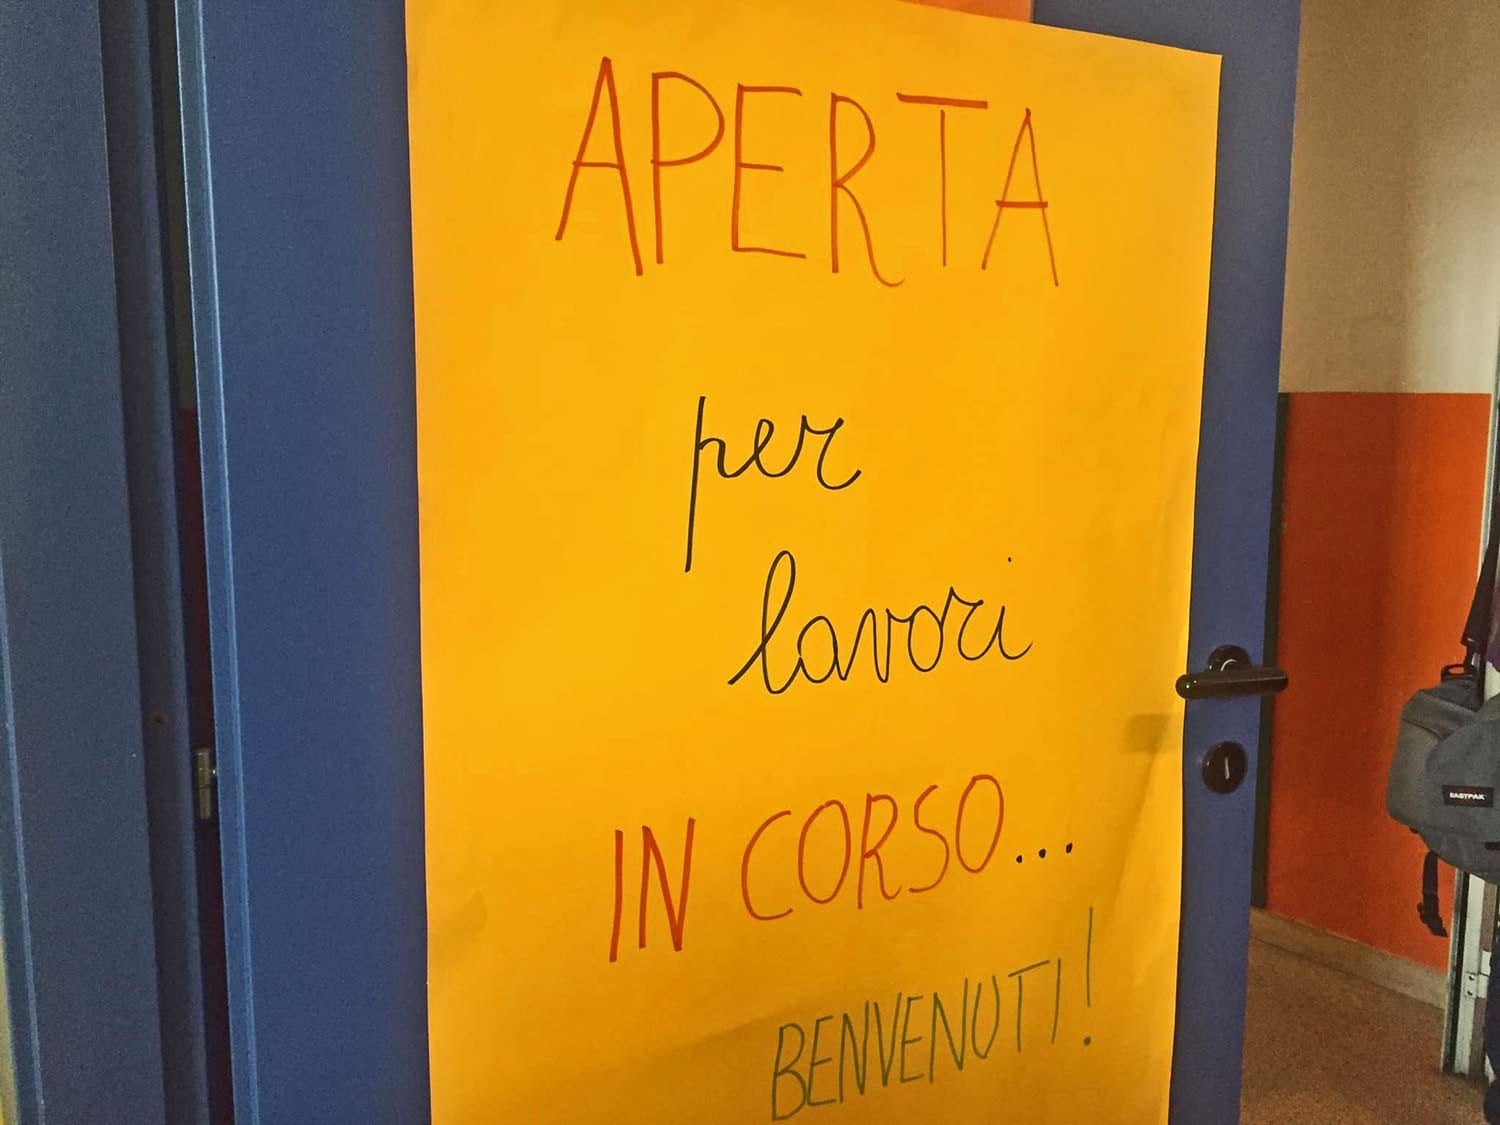 APERTA
per
lavori
IN CORSO...
BENVENUTI!
EASTPAK